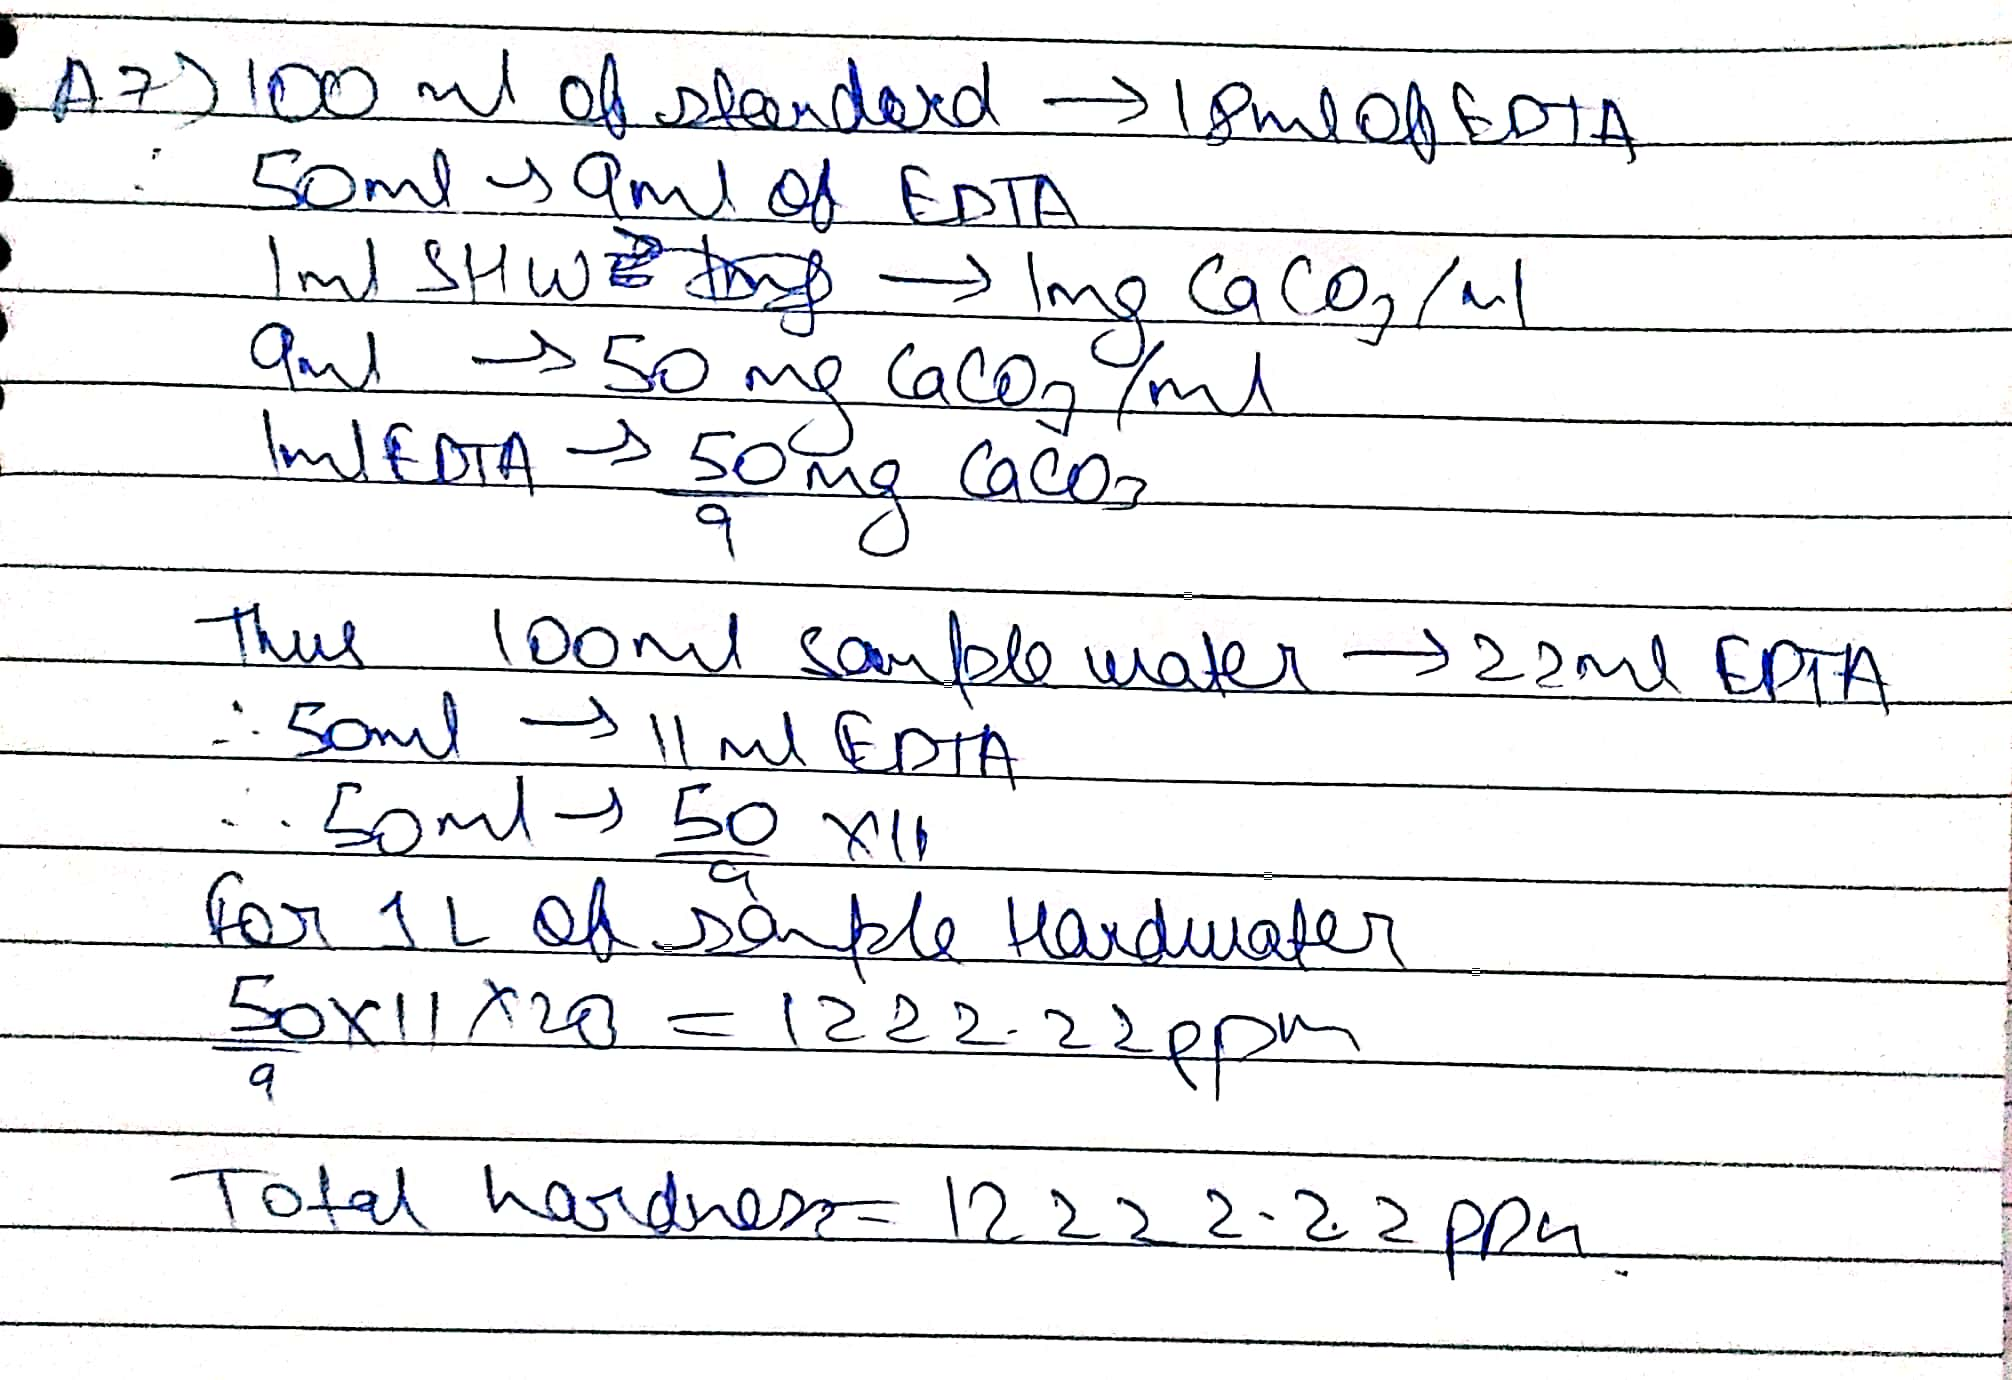 A7) 100 ml of standard → 18ml of EDTA
∴ 50ml → 9ml of EDTA
1ml SHW → 1mg CaCO3/ml
9ml → 50 mg CaCO3/ml
1ml EDTA → 50/9 mg CaCO3
Thus 100ml sample water → 22ml EDTA
∴ 50ml → 11 ml EDTA
∴ 50ml → 50/9 x11
for 1 L of sample Hardwater
50/9 x11 x20 = 1222.22ppm
Total hardness = 12222.22ppm.